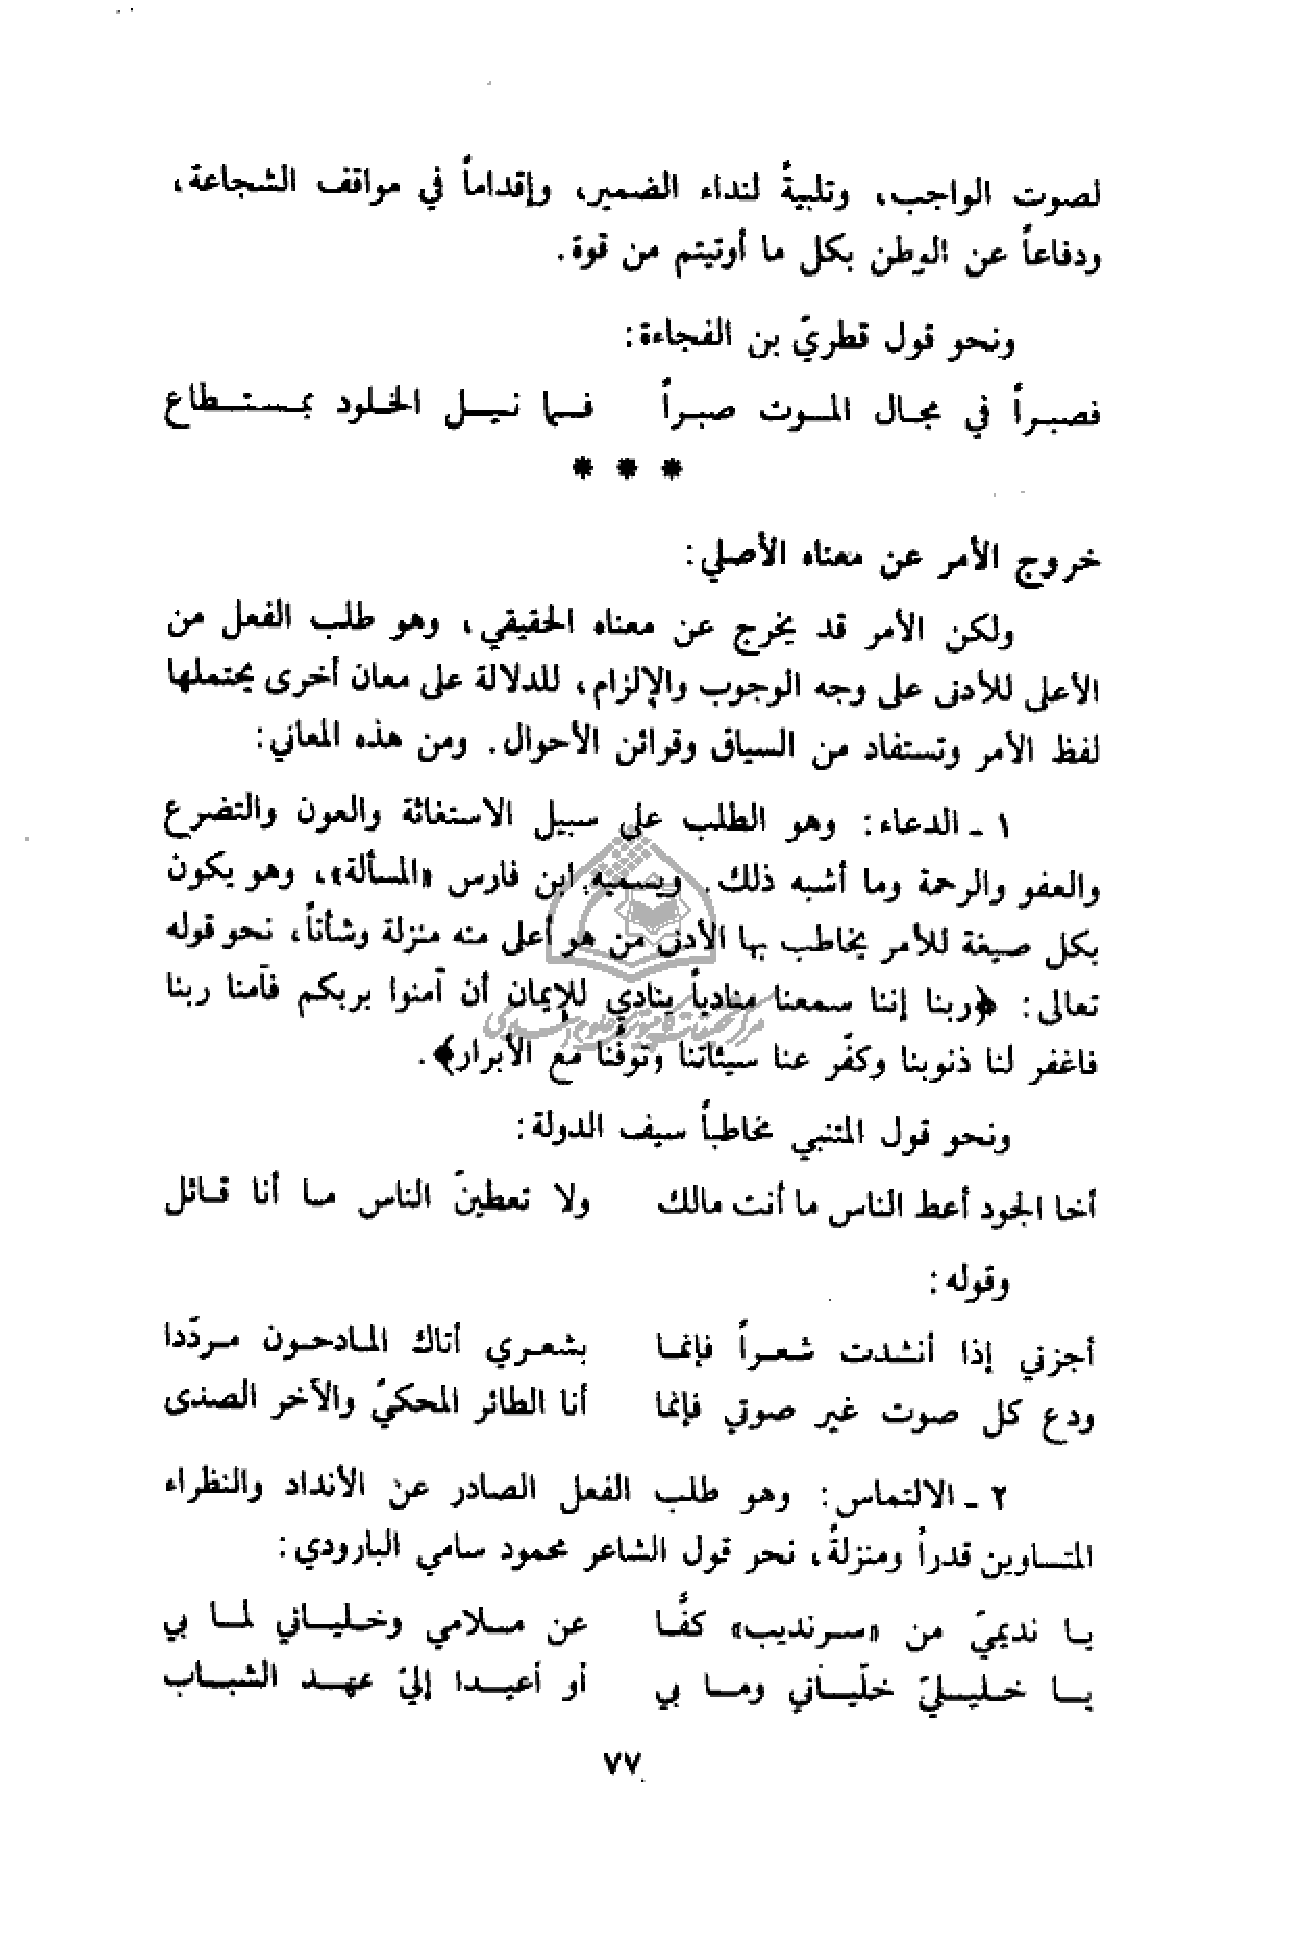 لصوت الواجب، وتلبيةً لنداء الضمير، وإقداماً في مواقف الشجاعة،
ودفاعاً عن الوطن بكل ما أوتيتم من قوة.
ونحو قول قطريّ بن الفجاءة:
فصبراً في مجال الموت صبراً فما نيل الخلود بمستطاع
* * *
خروج الأمر عن معناه الأصلي:
ولكن الأمر قد يخرج عن معناه الحقيقي، وهو طلب الفعل من
الأعلى للأدنى على وجه الوجوب والإلزام، للدلالة على معان أخرى يحتملها
لفظ الأمر وتستفاد من السياق وقرائن الأحوال. ومن هذه المعاني:
١ ـ الدعاء: وهو الطلب على سبيل الاستغاثة والعون والتضرع
والعفو والرحمة وما أشبه ذلك. ويسميه ابن فارس «المسألة»، وهو يكون
بكل صيغة للأمر يخاطب بها الأدنى من هو أعلى منه منزلة وشأناً، نحو قوله
تعالى: ﴿ربنا إننا سمعنا منادياً ينادي للإيمان أن آمنوا بربكم فآمنا ربنا
فاغفر لنا ذنوبنا وكفّر عنا سيئاتنا وتوفّنا مع الأبرار﴾.
ونحو قول المتنبي مخاطباً سيف الدولة:
أخا الجود أعط الناس ما أنت مالك ولا تعطينّ الناس ما أنا قائل
وقوله:
أجزني إذا أنشدت شعراً فإنما بشعري أتاك المادحون مردّدا
ودع كل صوت غير صوتي فإنما أنا الطائر المحكيّ والآخر الصدى
٢ ـ الالتماس: وهو طلب الفعل الصادر عن الأنداد والنظراء
المتساوين قدراً ومنزلةً، نحو قول الشاعر محمود سامي البارودي:
يا نديميّ من «سرنديب» كفَّا عن مسلامي وخلياني لما بي
يا خليليّ خلّياني وما بي أو أعيدا إليّ عهد الشباب
٧٧